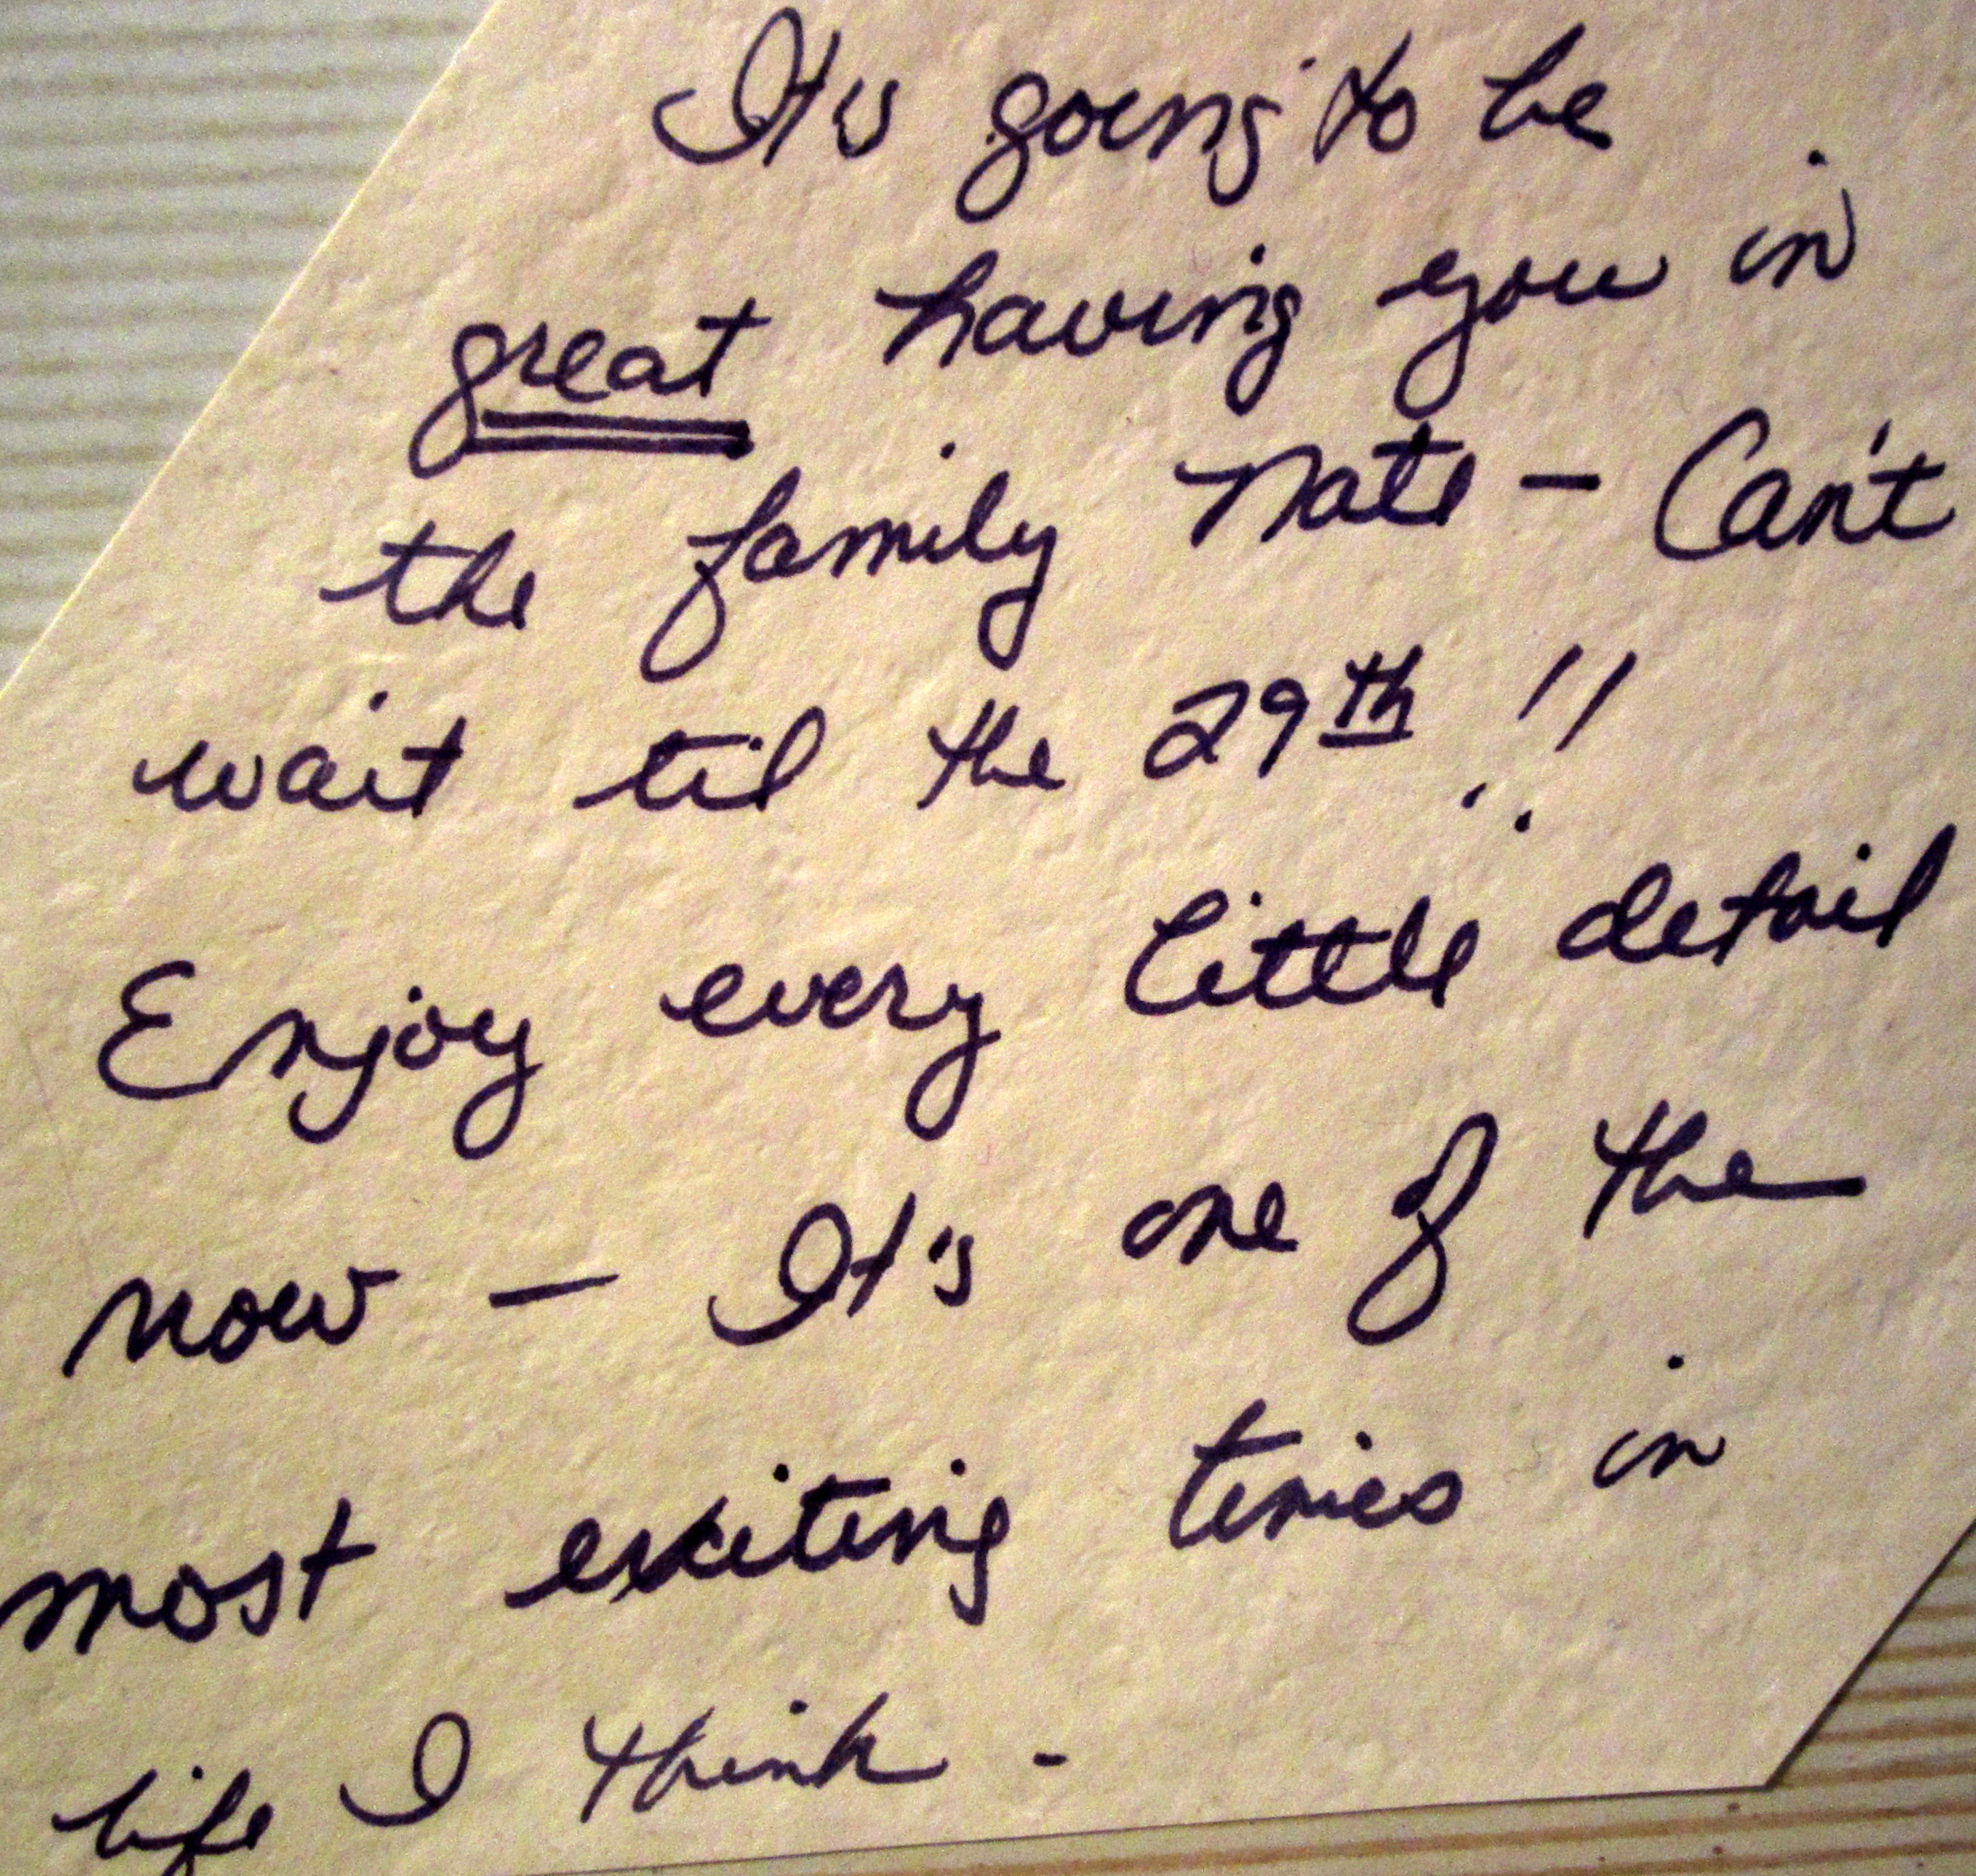 It's going to be
great having you in
the family Nate - Can't
wait til the 29th !!
Enjoy every little detail
now - It's one of the
most exciting times in
life I think -